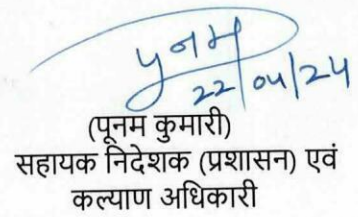 पूनम
22/04/24
(पूनम कुमारी)
सहायक निदेशक (प्रशासन) एवं
कल्याण अधिकारी